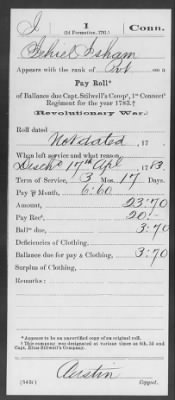 I
I
Conn.
(2d Formation, 1781.)
Jehiel Isham
Appears with the rank of Pvt on a
Pay Roll*
of Ballance due Capt. Stilwell's Comp†, 1st Connect
Regiment for the year 1783.†
Revolutionary War.
Roll dated
Not dated, 17
When left service and what reason
Disch 17th Apl 1783
Term of Service, 3 Mos. 17 Days.
Pay ₱ Month, 6:60
Amount, 23:70
Pay Rec, 20:
Bal due, 3:70
Deficiencies of Clothing,
Ballance due for pay & Clothing, 3:70
Surplus of Clothing,
Remarks:
*Appears to be an uncertified copy of an original roll.
†This company was designated at various times as 6th, 3d and
Capt. Elias Stilwell's Company.
Austin
(543c) Copyist.